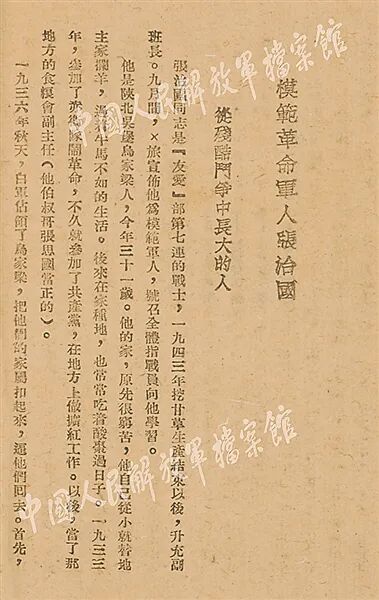 模範革命軍人張治國
從殘酷鬥爭中長大的人
張治國同志是『友愛』部第七連的戰士，一九四三年挖甘草生產結束以後，升充副
班長。九月間，×旅宣佈他為模範軍人，號召全體指戰員向他學習。
他是陝北吳堡烏家梁人，今年三十一歲。他的家，原先很窮苦，他自己從小就替地
主家攔羊，過着牛馬不如的生活。後來在家種地，也常常吃着酸棗過日子。一九三三
年，參加了赤衛隊鬧革命，不久就參加了共產黨，在地方上做擴紅工作。以後，當了那
地方的食糧會副主任（他伯叔哥張思國當正的）。
一九三六年秋天，白軍佔領了烏家梁，把他們的家屬扣起來，逼他們回去。首先，
中國人民解放軍檔案館
中國人民解放軍檔案館